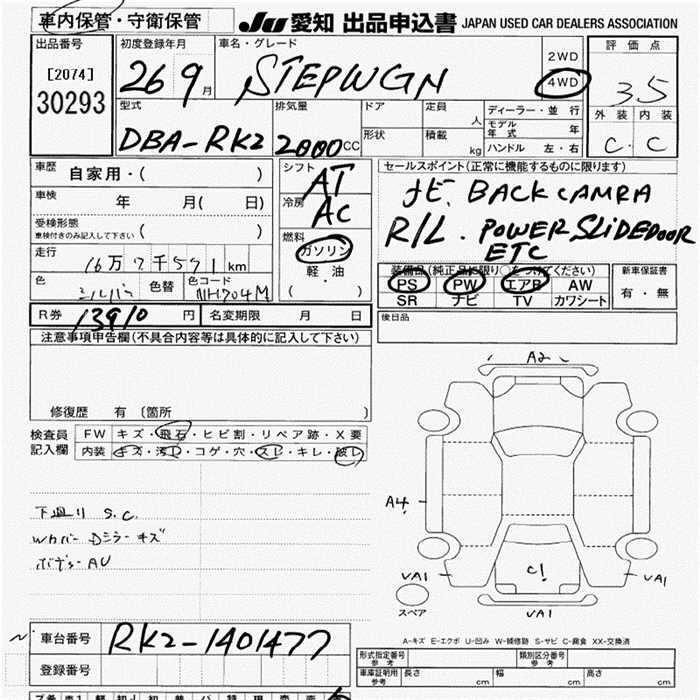 車内保管・守衛保管
JU 愛知 出品申込書 JAPAN USED CAR DEALERS ASSOCIATION
出品番号
[2074]
30293
初度登録年月
26 9 月
車名・グレード
STEPWGN
2WD
4WD
評価点
3.5
外装 内装
C . C
型式
DBA-RK2
排気量
2000 CC
ドア
形状
定員 人
積載 kg
ディーラー・並行
モデル年式 年
ハンドル 左・右
車歴 自家用・( )
車検 年 月( 日)
受検形態
車検付きのみ記入して下さい ( )
走行 16万7千571km
色 シルバー 色替 色コード NH704M
シフト
AT
冷房
AC
燃料
ガソリン
軽・油
( ・ )
セールスポイント(正常に機能するものに限ります)
ナビ. BACK CAMRA
R/L . POWER SLIDEDOOR
ETC
装備品(純正品に限り○をつけてください)
PS PW エアB AW
SR ナビ TV カワシート
新車保証書
有・無
後日品
R券 13910 円 名変期限 月 日
注意事項申告欄(不具合内容等は具体的に記入して下さい)
修復歴 有 〔箇所 〕
検査員記入欄
FW キズ・飛石・ヒビ割・リペア跡・X要
内装 キズ・汚レ・コゲ・穴・スレ・キレ・破レ
下廻り S.C.
Wカバー Dミラー キズ
ボディー AU
A2
A4
C1
VA1
VA1
VA1
スペア
A-キズ E-エクボ U-凹み W-補修跡 S-サビ C-腐食 XX-交換済
車台番号 RK2-1401477
登録番号
形式指定番号 参考
類別区分番号 参考
車庫証明用 参考 長さ cm 幅 cm 高さ cm